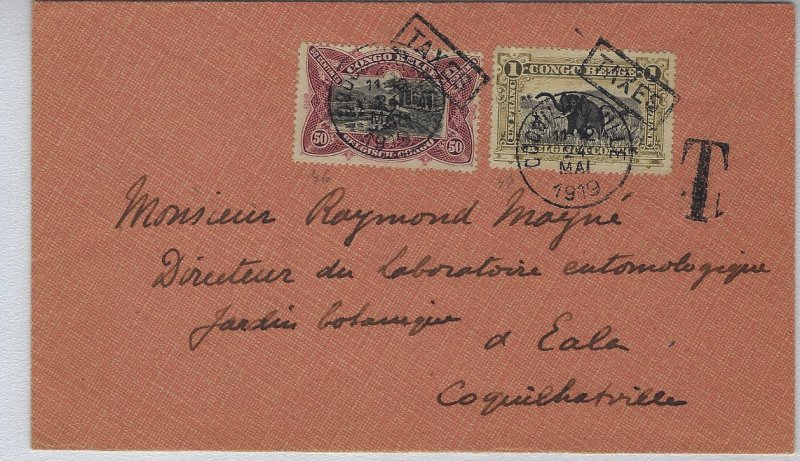 TAXES TAXES
CONGO BELGE
50 50
BELGISCH-CONGO
1 CONGO BELGE 1
UN FRANC
BELGISCH CONGO
11
MAI
1919
11
MAI
1919
T
46
Monsieur Raymond Mayné
Directeur du Laboratoire entomologique
Jardin botanique
d'Eala
Coquilhatville